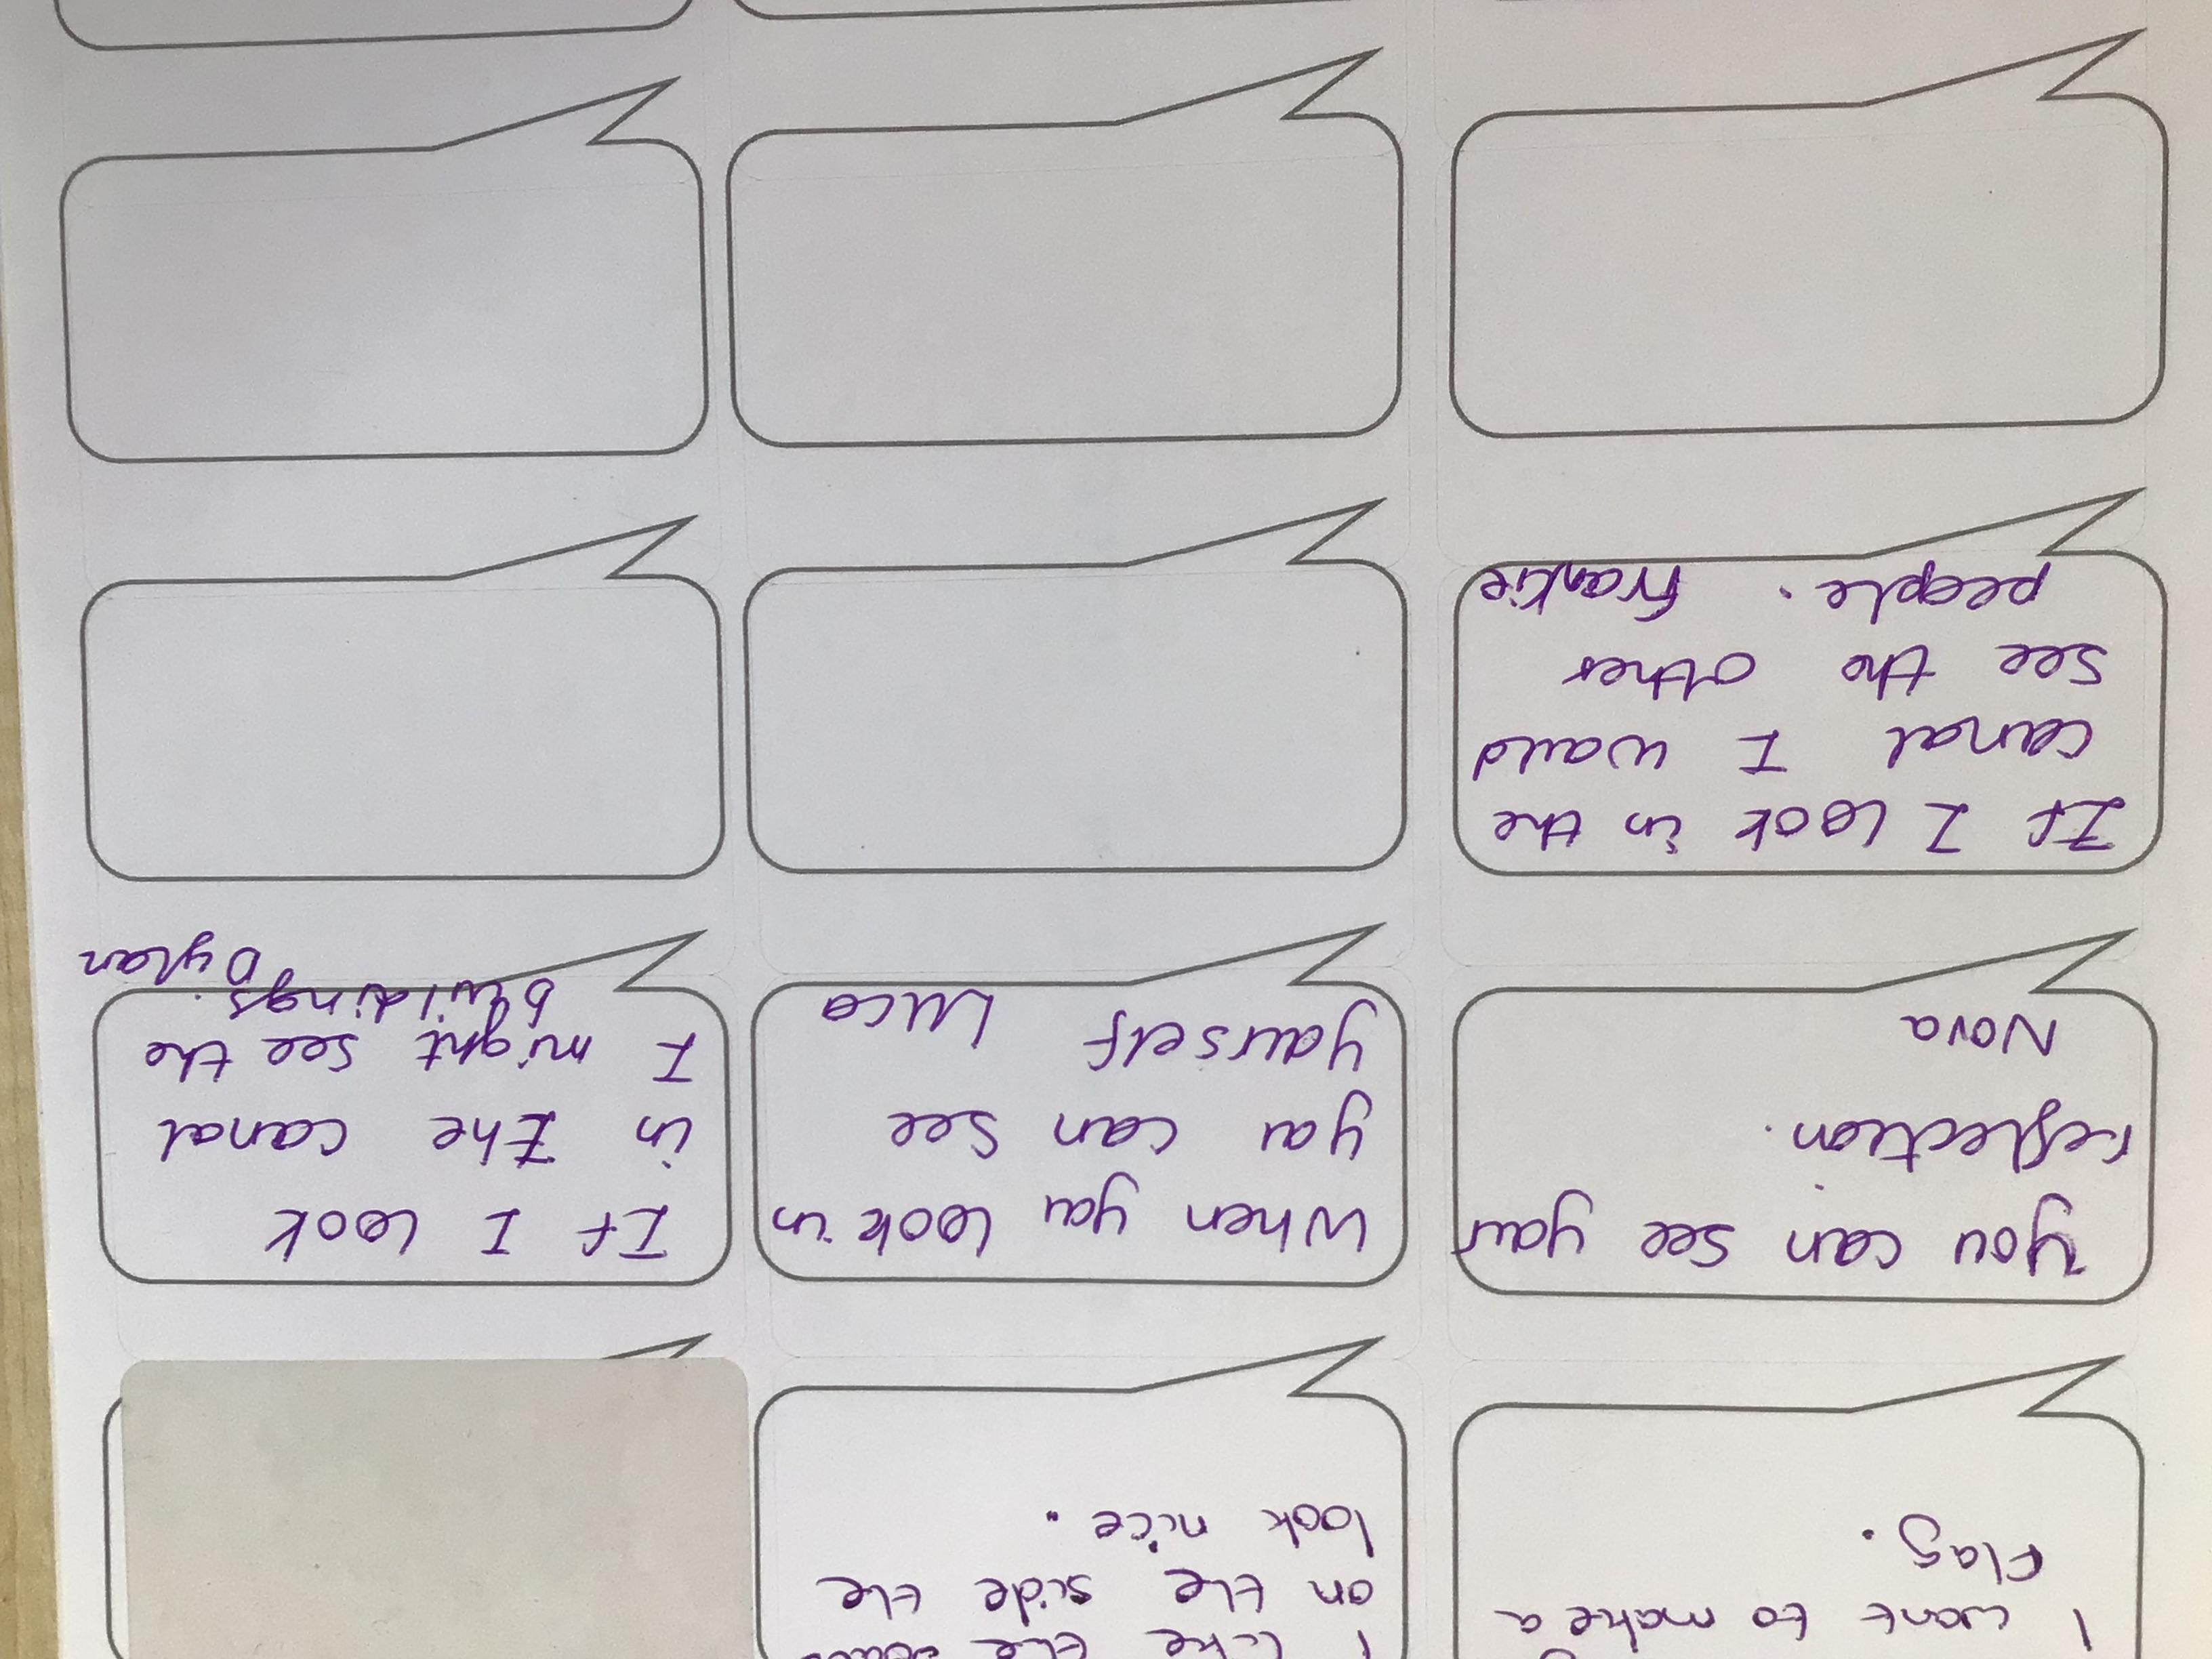 I want to make a
flag.
I like the
on the side the
look nice.
You can see your
reflection.
Nova
When you look in
you can see
yourself Luca
If I look
in the canal
I might see the
buildings.
Dylan
If I look in the
canal I would
see the other
people. Frankie